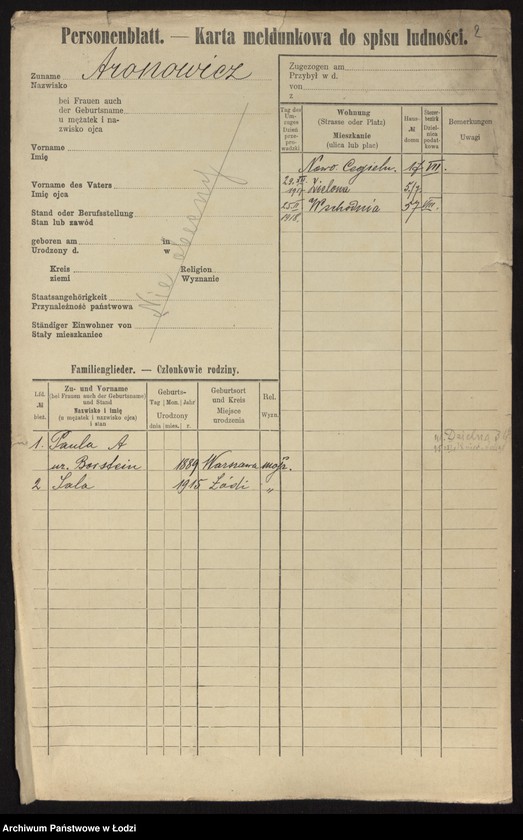 Personenblatt. — Karta meldunkowa do spisu ludności. 2
Zuname Aronowicz
Nazwisko
bei Frauen auch
der Geburtsname
u mężatek i na-
zwisko ojca
Vorname
Imię
Vorname des Vaters
Imię ojca
Stand oder Berufsstellung
Stan lub zawód
geboren am in
Urodzony d. w
Kreis Religion
ziemi Wyznanie
Staatsangehörigkeit
Przynależność państwowa
Ständiger Einwohner von
Stały mieszkaniec
Nieobecny
Zugezogen am
Przybył w d.
von
z
Tag des Um-zuges Dzień prze-prowadzki
Wohnung
(Strasse oder Platz)
Mieszkanie
(ulica lub plac)
Haus-
№
domu
Steuer-
bezirk
Dziel-
nica
podat-
kowa
Bemerkungen
Uwagi
Nowo. Cegieln. 17 VII.
29. 1917 Zielona 5/7
25 1918 Wschodnia 57 VIII.
Familienglieder. — Członkowie rodziny.
Lfd.
№
bież.
Zu- und Vorname
(bei Frauen auch der Geburtsname)
und Stand
Nazwisko i imię
(u mężatek i nazwisko ojca)
i stan
Geburts-
Tag Mon. Jahr
Urodzony
dnia mies. r.
Geburtsort
und Kreis
Miejsce
urodzenia
Rel.
Wyzn.
1. Paula A
ur. Borstein 1889 Warszawa mojż.
2 Sala 1915 Łódź "
Archiwum Państwowe w Łodzi